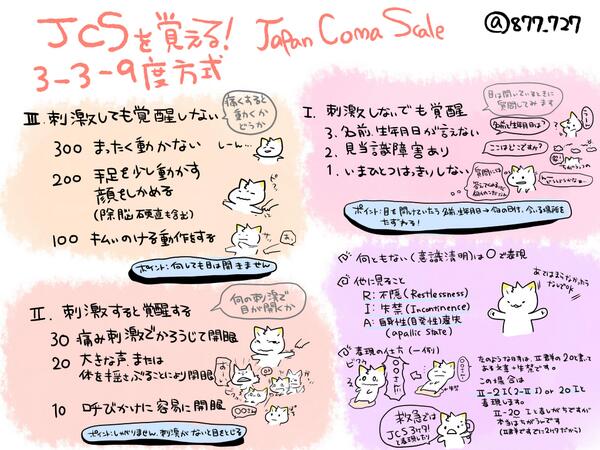 JCSを覚える! Japan Coma Scale
@877_727
3-3-9度方式
Ⅲ. 刺激しても覚醒しない
痛くすると
動くか
どうか
300 まったく動かない
しーん…
200 手足を少し動かす
顔をしかめる
(除脳硬直も含む)
100 払いのける動作をする
ポイント:何しても目は開きません
Ⅱ. 刺激すると覚醒する
何の刺激で
目が開くか
30 痛み刺激でかろうじて開眼
20 大きな声または
体を揺さぶることにより開眼
10 呼びかけに容易に開眼
ポイント:しかりません。刺激がないと目をとじる
Ⅰ. 刺激しないでも覚醒
目は開いているときに
質問してみます
3. 名前、生年月日が言えない
名前と生年月日は?
2. 見当識障害あり
ここはどこですか?
1. いまひとつはっきりしない
ポイント:目を開けていたら名前、生年月日→今の日付、今いる場所を
たずねる!
何ともない(意識清明)は0で表現
他に見ること
R:不隠(Restlessness)
I:失禁(Incontinence)
A:自身性(自発性)喪失
(apallic state)
あてはまらなかったら
ないでOK
表現の仕方(一例)
左のような時は、Ⅱ群の20と言って
ある文言+失禁です。
この場合は
Ⅱ-2I(2-ⅡI) or 20Iと
表現します。
Ⅱ-20 Iと表しがちですが
本当はちがうんです
(Ⅱ群ですでに2ケタだから)
救急では
JCS3ケタ!
と表現したり